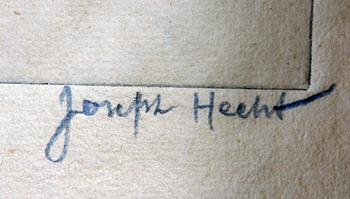 Joseph Hecht